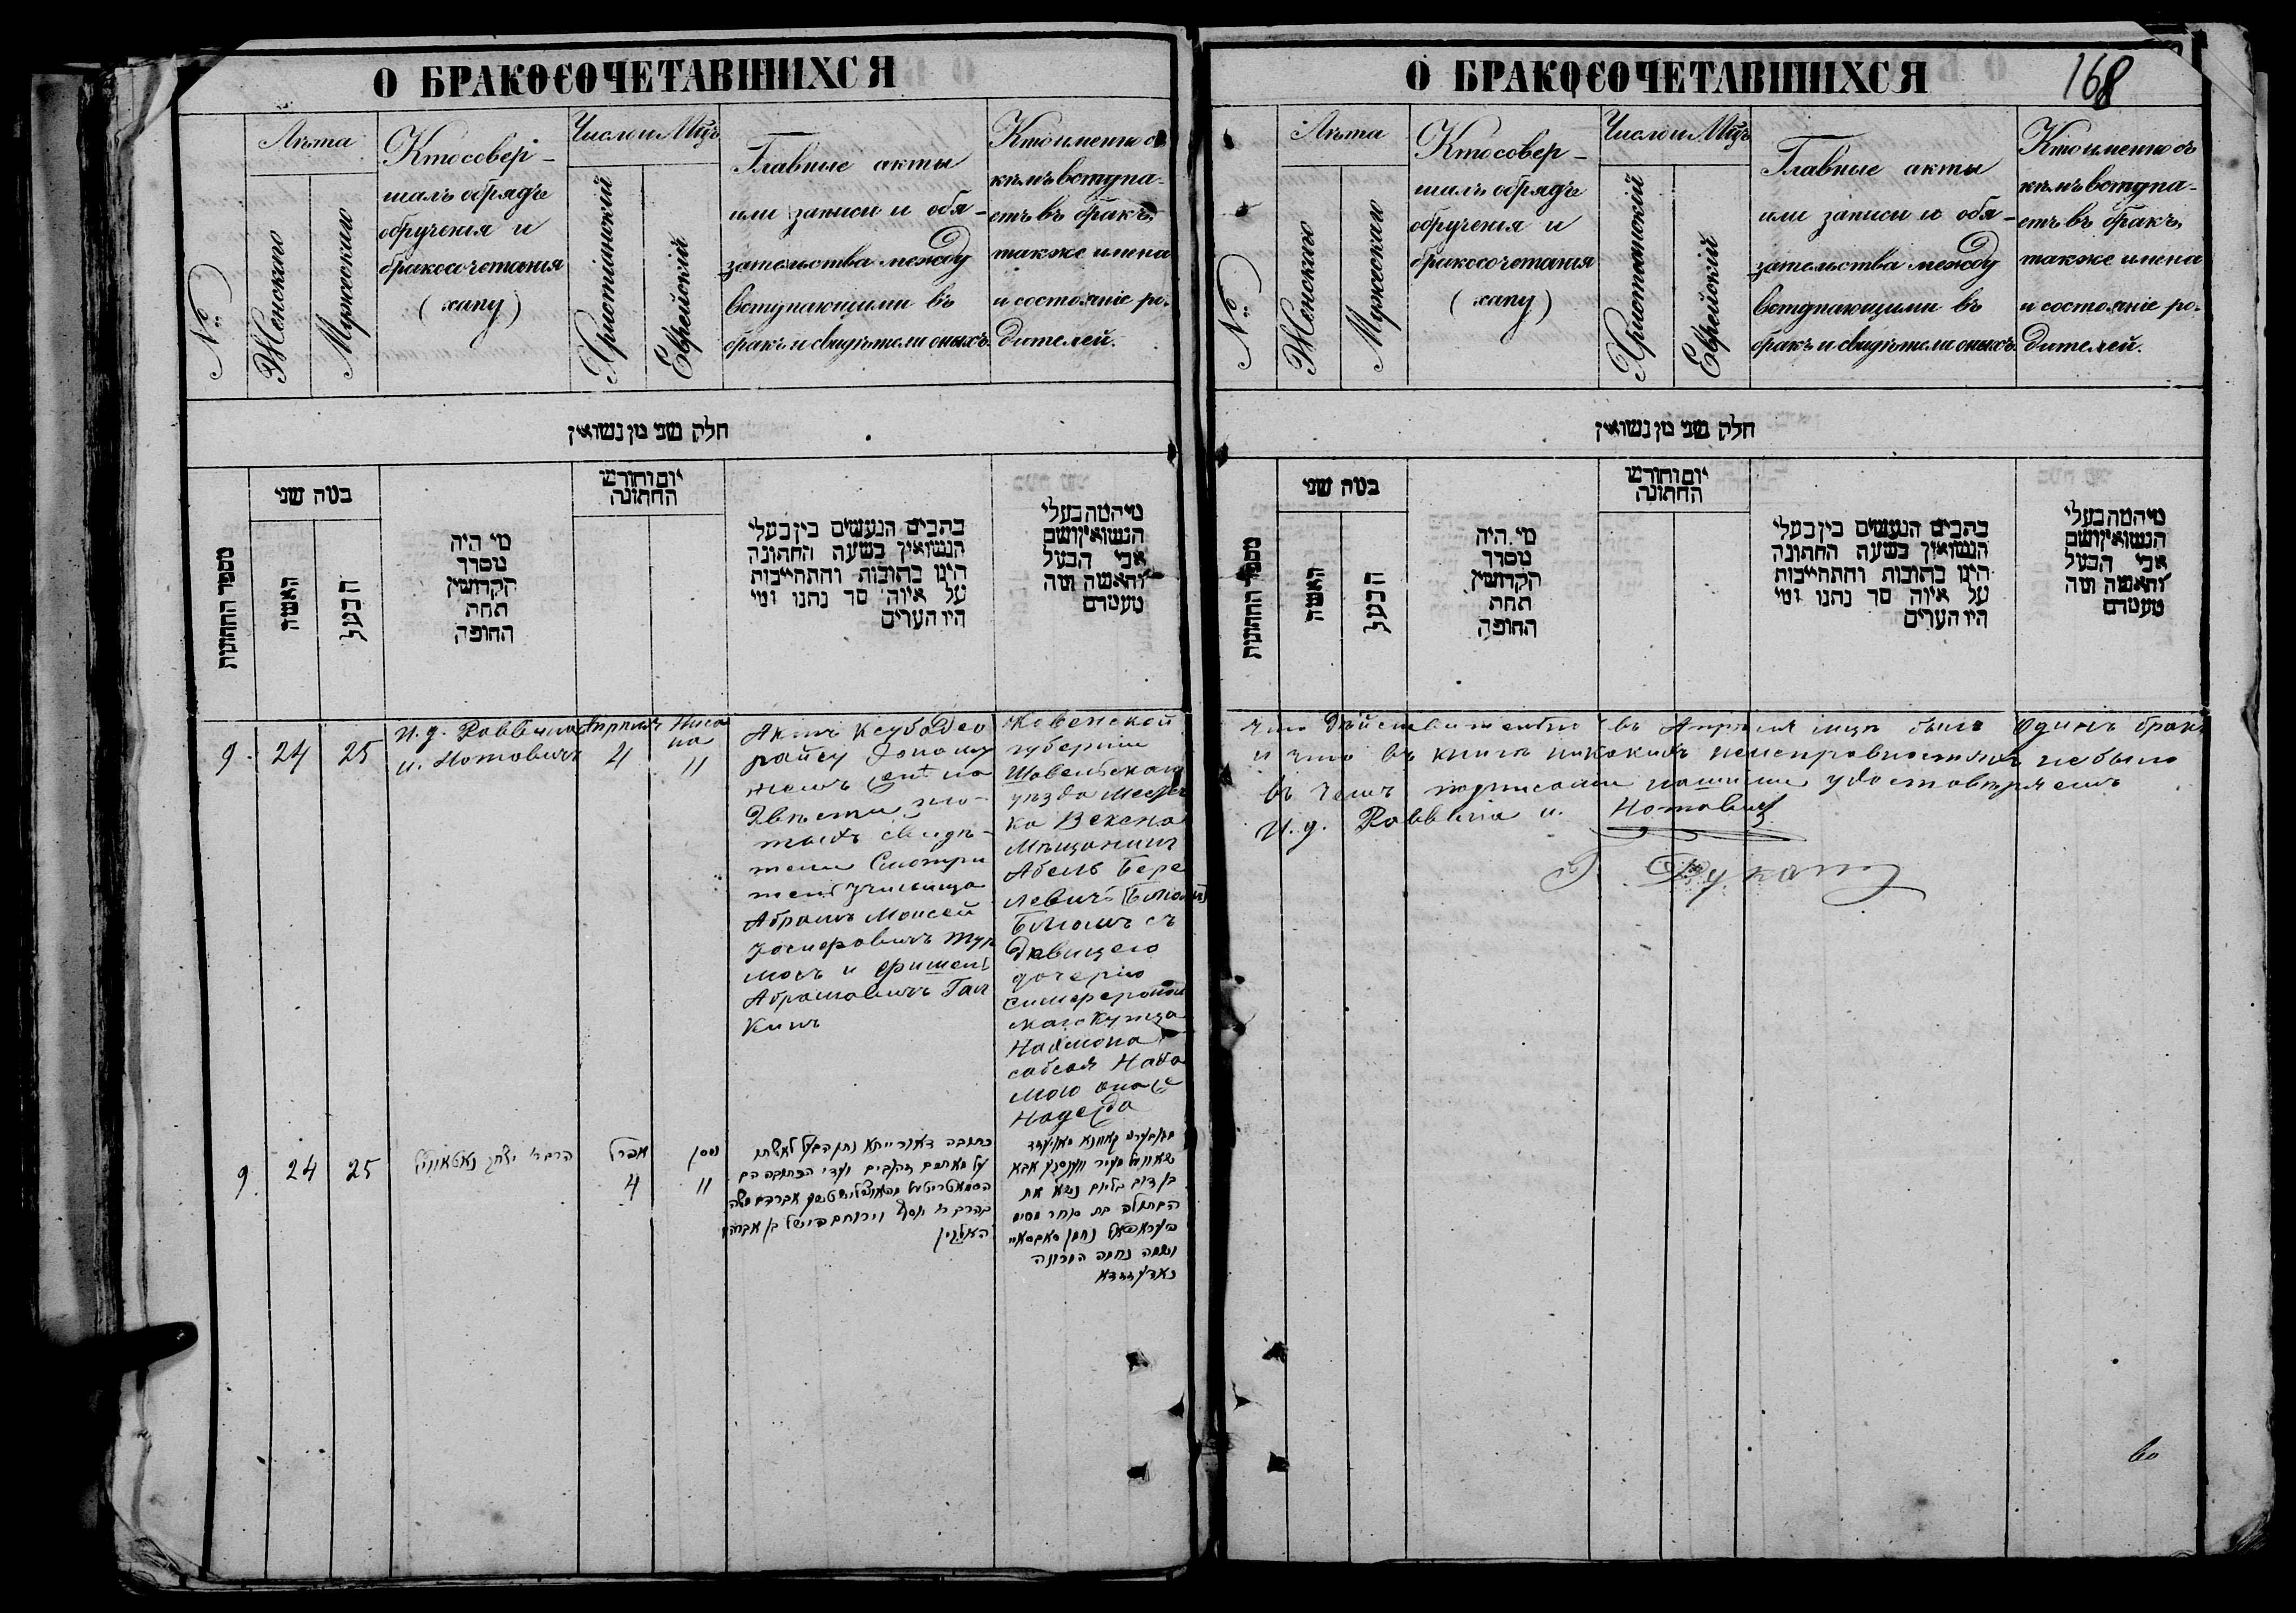 О БРАКОСОЧЕТАВШИХСЯ
№
Лѣта
Женскаго
Мужескаго
Кто совер-
шалъ обрядъ
обрученія и
бракосочетанія
(хапу)
Число и Мцъ
Христіанскій
Еврейскій
Главные акты
или записи и обя-
зательства между
вступающими въ
бракъ и свидѣтели оныхъ.
Кто именно съ
кѣмъ вступа-
етъ въ бракъ,
также имена
и состояніе ро-
дителей.
חלק שני מן נשואין
מספר החתונות
במה שני
האשה
הבעל
מי היה
מסדר
הקדושין
תחת
החופה
יום וחודש
החתונה
כתבים הנעשים בין בעלי
הנשואין בשעת החתונה
היינו כתובות והתחייבות
על איזה סך נתנו ומי
היו העדים
מי המה בעלי
הנשואין ושם
אבי הבעל
והאשה ומה
מעמדם
9.
24
25
И. д. Раввина
И. Нотовичъ
Апрѣля
4
Ниса
на
11
Актъ Ксубо Део
райсу
на
Двѣсти зло-
тыхъ свидѣ-
тели Смотри
тель училища
Абрамъ Моисей
Іосифовичъ
и Фишель
Абрамовичъ Гал
кинъ
Ковенской
губерніи
Шавельскаго
уѣзда Местеч
ка Векена
Мѣщанинъ
Абель Бере
левичъ
Блюмъ съ
дѣвицею
дочерію
симферополь
скаго купца
Наймона
сабсая Наха
мою она же
Надежда
9.
24
25
הרב ר' יצחק נאטאוויץ
אפריל
4
ניסן
11
כתובה דאורייתא נתן הבעל לאשתו
על מאתים זהובים ועדי הכתובה הם
אברהם משה
בהרב ר' יוסף
בן אברהם
נשא את
הבתולה בת סוחר
נחמן
נחמה המכונה
נאדעזדא
О БРАКОСОЧЕТАВШИХСЯ
168
№
Лѣта
Женскаго
Мужескаго
Кто совер-
шалъ обрядъ
обрученія и
бракосочетанія
(хапу)
Число и Мцъ
Христіанскій
Еврейскій
Главные акты
или записи и обя-
зательства между
вступающими въ
бракъ и свидѣтели оныхъ.
Кто именно съ
кѣмъ вступа-
етъ въ бракъ,
также имена
и состояніе ро-
дителей.
חלק שני מן נשואין
מספר החתונות
במה שני
האשה
הבעל
מי היה
מסדר
הקדושין
תחת
החופה
יום וחודש
החתונה
כתבים הנעשים בין בעלי
הנשואין בשעת החתונה
היינו כתובות והתחייבות
על איזה סך נתנו ומי
היו העדים
מי המה בעלי
הנשואין ושם
אבי הבעל
והאשה ומה
מעמדם
что дѣйствительно въ Апрѣлѣ мцѣ былъ одинъ бракъ
и что въ книгѣ никакихъ неисправностей не было
въ чемъ подписями нашими удостовѣряемъ
И. д. Раввина И. Нотовичъ
во